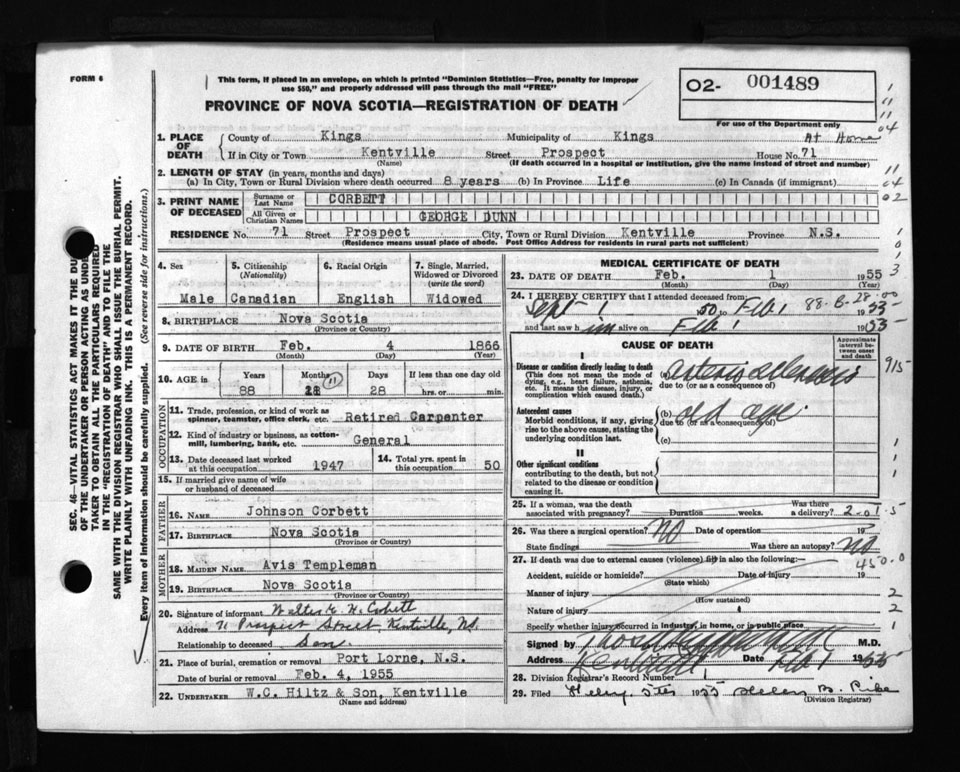 FORM 6
This form, if placed in an envelope, on which is printed "Dominion Statistics—Free, penalty for improper
use $50," and properly addressed will pass through the mail "FREE"
PROVINCE OF NOVA SCOTIA—REGISTRATION OF DEATH
02- 001489
For use of the Department only
1. PLACE OF DEATH
County of Kings Municipality of Kings At Home
If in City or Town Kentville Street Prospect House No. 71
(Name) (If death occurred in a hospital or institution, give the name instead of street and number)
2. LENGTH OF STAY (in years, months and days)
(a) In City, Town or Rural Division where death occurred 8 years (b) In Province Life (c) In Canada (if immigrant)
3. PRINT NAME OF DECEASED
Surname or Last Name CORBETT
All Given or Christian Names GEORGE DUNN
RESIDENCE No. 71 Street Prospect City, Town or Rural Division Kentville Province N.S.
(Residence means usual place of abode. Post Office Address for residents in rural parts not sufficient)
4. Sex
Male
5. Citizenship (Nationality)
Canadian
6. Racial Origin
English
7. Single, Married, Widowed or Divorced (write the word)
Widowed
8. BIRTHPLACE Nova Scotia
(Province or Country)
9. DATE OF BIRTH Feb. 4 1866
(Month) (Day) (Year)
10. AGE in Years Months Days If less than one day old
88 11 28 hrs. or min.
11. Trade, profession, or kind of work as spinner, teamster, office clerk, etc. Retired Carpenter
12. Kind of industry or business, as cotton-mill, lumbering, bank, etc. General
13. Date deceased last worked at this occupation 1947
14. Total yrs. spent in this occupation 50
15. If married give name of wife or husband of deceased
OCCUPATION
FATHER
16. Name Johnson Corbett
17. Birthplace Nova Scotia
(Province or Country)
MOTHER
18. Maiden Name Avis Templeman
19. Birthplace Nova Scotia
(Province or Country)
20. Signature of informant Walter H. Corbett
Address 71 Prospect Street, Kentville, N.S.
Relationship to deceased Son
21. Place of burial, cremation or removal Port Lorne, N.S.
Date of burial or removal Feb. 4, 1955
22. Undertaker W.C. Hiltz & Son, Kentville
(Name and address)
MEDICAL CERTIFICATE OF DEATH
23. DATE OF DEATH Feb. 1 1955
(Month) (Day) (Year)
24. I HEREBY CERTIFY that I attended deceased from:
Sept 1 1950 to Feb 1 1955
88-B-28-00
and last saw him alive on Feb 1 1955
CAUSE OF DEATH
Approximate interval between onset and death
I
Disease or condition directly leading to death
(This does not mean the mode of dying, e.g., heart failure, asthenia, etc. It means the disease, injury, or complication which caused death.)
(a) arterio sclerosis
due to (or as a consequence of)
Antecedent causes
Morbid conditions, if any, giving rise to the above cause, stating the underlying condition last.
(b) old age.
due to (or as a consequence of)
(c)
II
Other significant conditions
contributing to the death, but not related to the disease or condition causing it.
25. If a woman, was the death associated with pregnancy? Duration weeks. Was there a delivery?
26. Was there a surgical operation? No Date of operation 19
State findings Was there an autopsy? No
27. If death was due to external causes (violence) fill in also the following:
Accident, suicide or homicide? Date of injury 19
(State which)
Manner of injury
(How sustained)
Nature of injury
Specify whether injury occurred in industry, in home, or in public place
Signed by M.D.
Address Kentville Date Feb 1 1955
28. Division Registrar's Record Number 1
29. Filed 1955 Helen B.
(Division Registrar)
SEC. 46—VITAL STATISTICS ACT MAKES IT THE DUTY
OF THE UNDERTAKER OR PERSON ACTING AS UNDER-
TAKER TO OBTAIN ALL THE PARTICULARS REQUIRED
IN THE "REGISTRATION OF DEATH" AND TO FILE THE
SAME WITH THE DIVISION REGISTRAR WHO SHALL ISSUE THE BURIAL PERMIT.
WRITE PLAINLY WITH UNFADING INK. THIS IS A PERMANENT RECORD.
Every item of information should be carefully supplied. (See reverse side for instructions.)